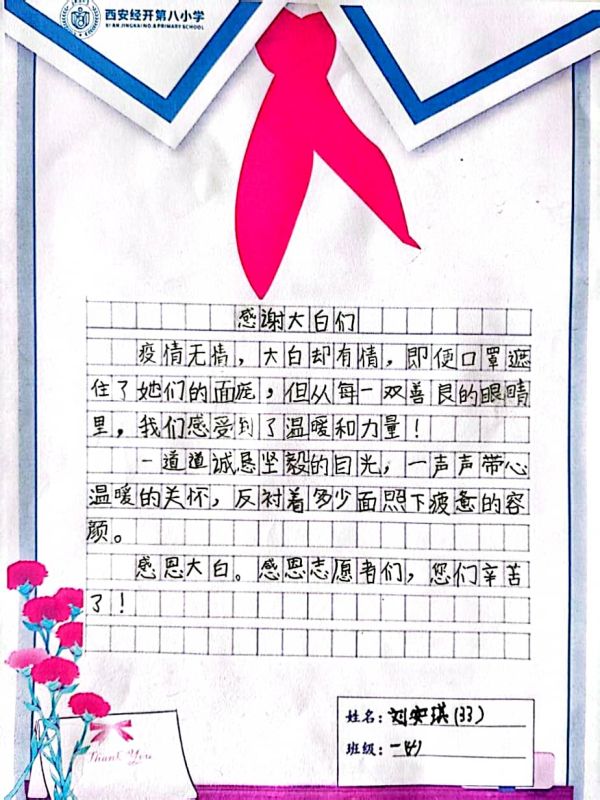 西安经开第八小学
XI'AN JINGKAI NO.8 PRIMARY SCHOOL
感谢大白们
疫情无情，大白却有情，即便口罩遮
住了她们的面庞，但从每一双善良的眼睛
里，我们感受到了温暖和力量！
一道道诚恳坚毅的目光，一声声带心
温暖的关怀，反衬着多少面照下疲惫的容
颜。
感恩大白。感恩志愿者们，您们辛苦
了！
Thank You
姓名：刘安琪(33)
班级：一